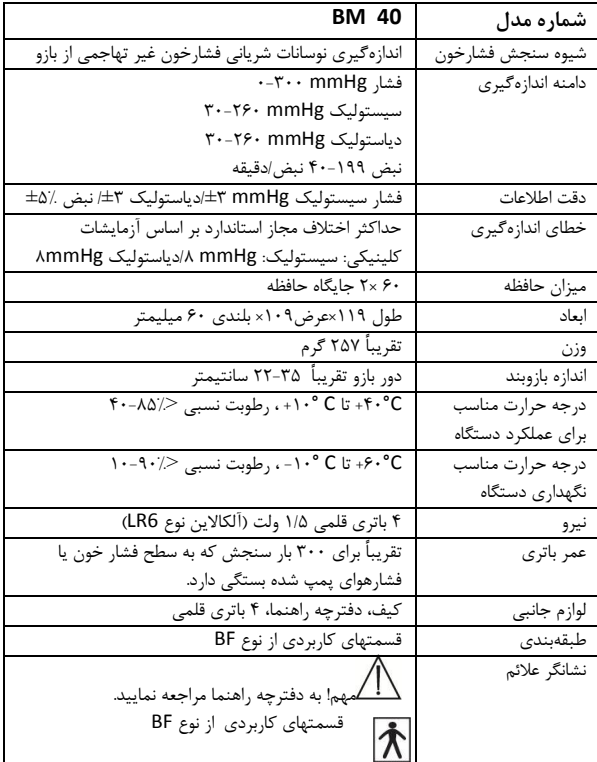 شماره مدل BM 40
شیوه سنجش فشارخون اندازه‌گیری نوسانات شریانی فشارخون غیر تهاجمی از بازو
دامنه اندازه‌گیری فشار mmHg ۰-۳۰۰
سیستولیک mmHg ۳۰-۲۶۰
دیاستولیک mmHg ۳۰-۲۶۰
نبض ۱۹۹-۴۰ نبض/دقیقه
دقت اطلاعات فشار سیستولیک mmHg ۳±/دیاستولیک ۳±/ نبض ٪۵±
خطای اندازه‌گیری حداکثر اختلاف مجاز استاندارد بر اساس آزمایشات
کلینیکی: سیستولیک: mmHg ۸/دیاستولیک ۸mmHg
میزان حافظه ۶۰ ×۲ جایگاه حافظه
ابعاد طول ۱۱۹×عرض۱۰۹× بلندی ۶۰ میلیمتر
وزن تقریباً ۲۵۷ گرم
اندازه بازوبند دور بازو تقریباً ۳۵-۲۲ سانتیمتر
درجه حرارت مناسب
برای عملکرد دستگاه
+۴۰°C تا +۱۰° C ، رطوبت نسبی <٪۸۵-۴۰
درجه حرارت مناسب
نگهداری دستگاه
+۶۰°C تا -۱۰° C ، رطوبت نسبی <٪۹۰-۱۰
نیرو ۴ باتری قلمی ۱/۵ ولت (آلکالاین نوع LR6)
عمر باتری تقریباً برای ۳۰۰ بار سنجش که به سطح فشار خون یا
فشارهوای پمپ شده بستگی دارد.
لوازم جانبی کیف، دفترچه راهنما، ۴ باتری قلمی
طبقه‌بندی قسمتهای کاربردی از نوع BF
نشانگر علائم مهم! به دفترچه راهنما مراجعه نمایید.
قسمتهای کاربردی از نوع BF